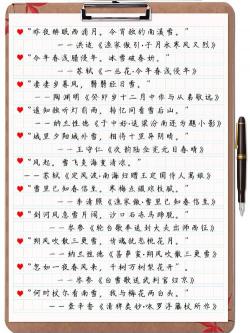 "昨夜醉眠西浦月，今宵独钓南溪雪。"
——洪适《渔家傲引·子月水寒风又烈》
"今年春浅腊侵年，冰雪破春妍。"
——苏轼《一丛花·今年春浅侵年》
"凄凄岁暮风，翳翳经日雪。"
——陶渊明《癸卯岁十二月中作与从弟敬远》
"遥知独听灯前雨，转忆同看雪后山。"
——纳兰性德《于中好·送梁汾南还为题小影》
"城里夕阳城外雪，相将十里异阴晴。"
——王守仁《次韵陆佥宪元日春晴》
"风起，雪飞炎海变清凉。"
——苏轼《定风波·南海归赠王定国侍人寓娘》
"雪里已知春信至，寒梅点缀琼枝腻。"
——李清照《渔家傲·雪里已知春信至》
"剑河风急雪片阔，沙口石冻马蹄脱。"
——岑参《轮台歌奉送封大夫出师西征》
"朔风吹散三更雪，倩魂犹恋桃花月。"
——纳兰性德《菩萨蛮·朔风吹散三更雪》
"忽如一夜春风来，千树万树梨花开"。
——岑参《白雪歌送武判官归京》
"何时杖尔看南雪，我与梅花两白头。"
——查辛香《清稗类钞·咏罗浮藤杖所作》